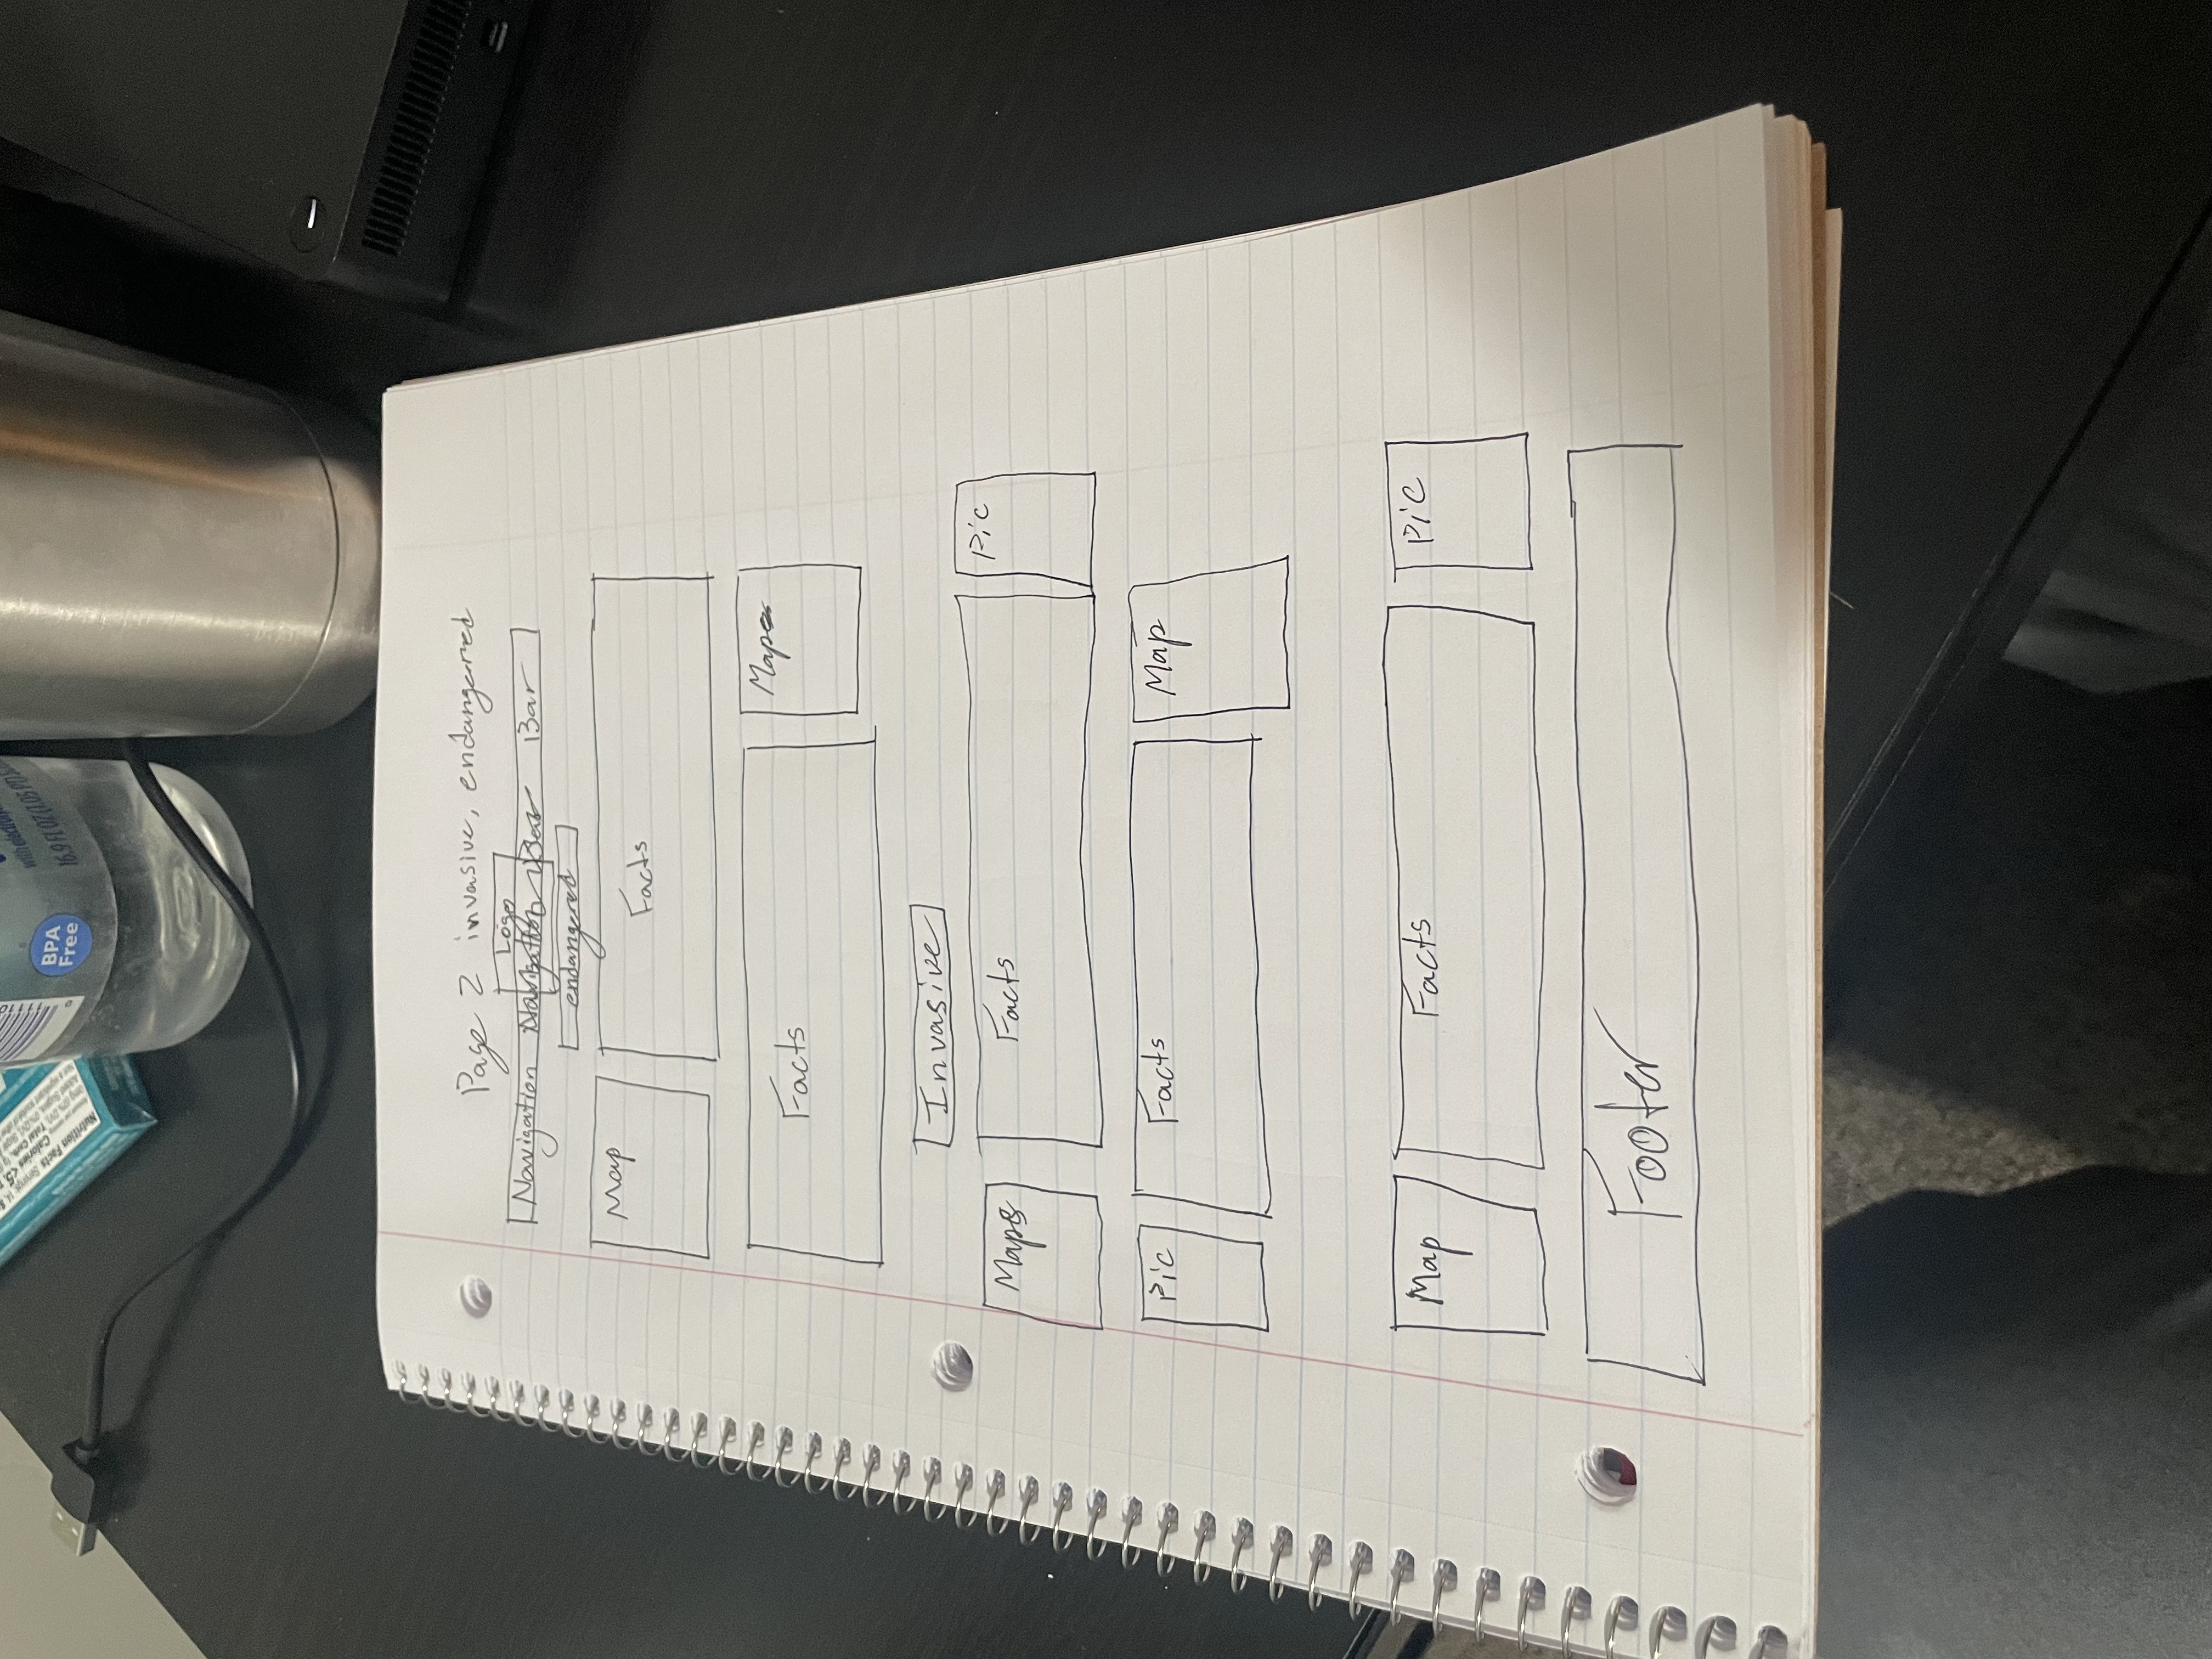 Nutrition Facts
BPA
Free
with electrolytes
16.9 FL OZ (1.05 PT)
Page 2 invasive, endangerred
Logo
Navigation Navigation Bar Bar
endangered
Map Facts
Facts Map
Invasive
Maps Facts Pic
Pic Facts Map
Map Facts Pic
Footer